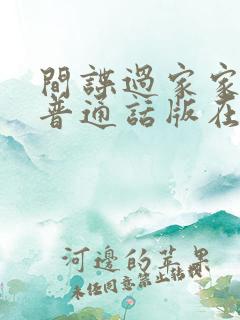 間諜過家家
普通話版在
河邊的苹果
未经同意禁止转载